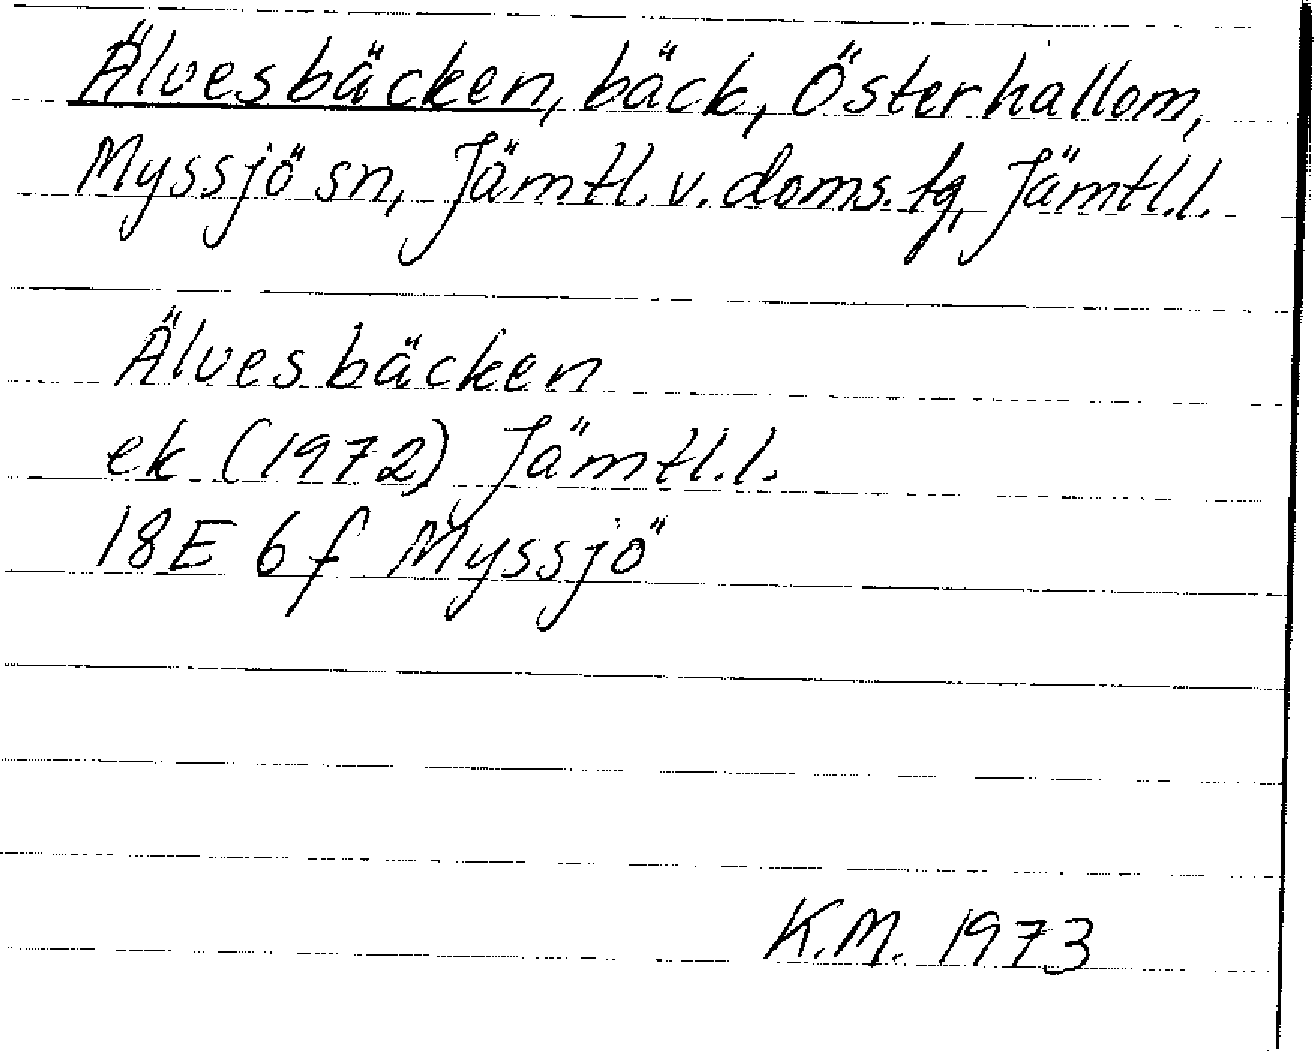 Älvesbäcken, bäck, Österhallom,
Myssjö sn, Jämtl. v. doms. tg, Jämtl.l.
Älvesbäcken
ek (1972) Jämtl.l.
18E 6f Myssjö
K.M. 1973